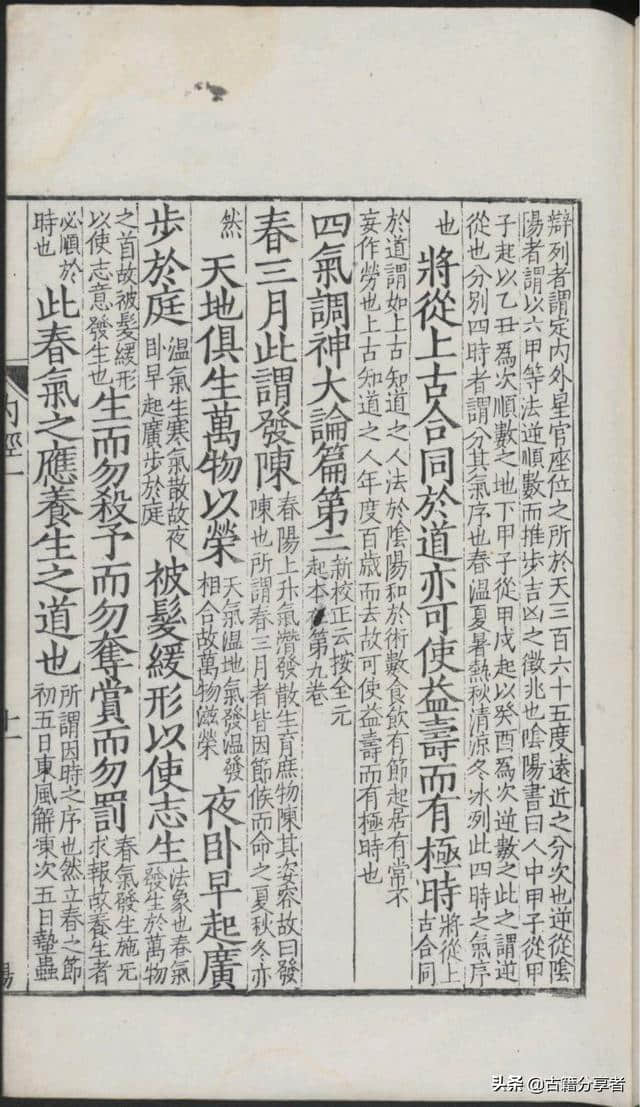 辯列者謂定内外星官座位之所於天三百六十五度遠近之分次也逆從陰
陽者謂以六甲等法逆順數而推步吉凶之徵兆也陰陽書曰人中甲子從甲
子起以乙丑爲次順數之地下甲子從甲戌起以癸酉爲次逆數之此之謂逆
從也分别四時者謂分其氣序也春温夏暑熱秋清凉冬冰冽此四時之氣序
也
將從上古合同於道亦可使益壽而有極時
將從上
古合同
於道謂如上古知道之人法於陰陽和於術數食飲有節起居有常不
妄作勞也上古知道之人年度百歲而去故可使益壽而有極時也
四氣調神大論篇第二
新校正云按全元
起本在第九卷
春三月此謂發陳
春陽上升氣潛發散生育庶物陳其姿容故曰發
陳也所謂春三月者皆因節候而命之夏秋冬亦
然
天地俱生萬物以榮
天氣温地氣發温發
相合故萬物滋榮
夜卧早起廣
步於庭
温氣生寒氣散故夜
卧早起廣步於庭
被髮緩形以使志生
法象也春氣
發生於萬物
之首故被髮緩形
以使志意發生也
生而勿殺予而勿奪賞而勿罰
春氣發生施无
求報故養生者
必順於
時也
此春氣之應養生之道也
所謂因時之序也然立春之節
初五日東風解凍次五日蟄蟲
内經一
十一
頭条@古籍分享者